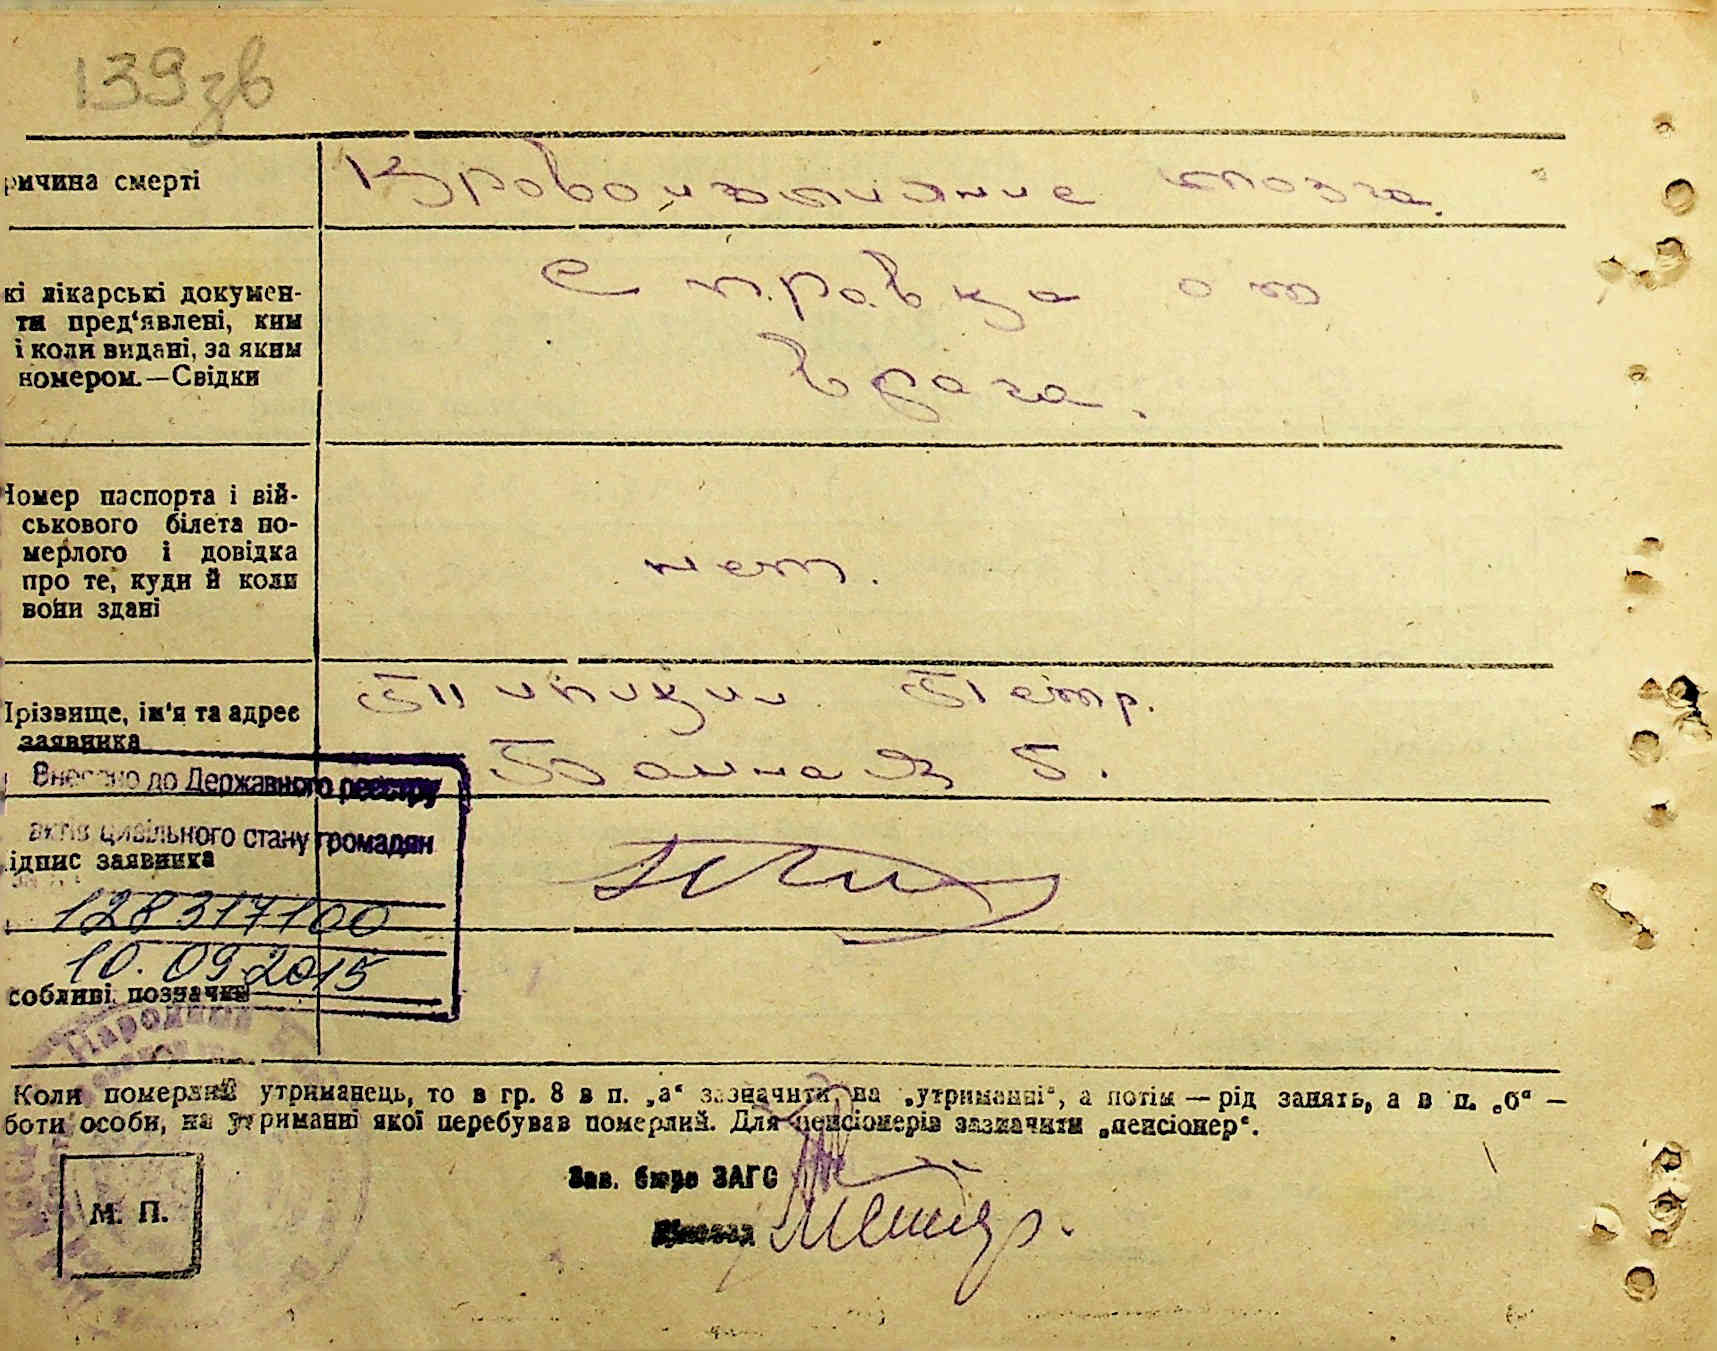 139 зв
ричина смерті
Кровоизлияние мозга.
кі лікарські докумен-
ти пред'явлені, ким
і коли видані, за яким
номером.—Свідки
Справка от
врача.
Номер паспорта і вій-
ськового білета по-
мерлого і довідка
про те, куди й коли
вони здані
нет.
Прізвище, ім'я та адрес
заявника
Петр.
5.
Внесено до Державного реєстру
актів цивільного стану громадян
ідпис заявника
128317100
10.09.2015
собливі позначки
Народний
Коли померлий утриманець, то в гр. 8 в п. „а“ зазначити, на „утриманні“, а потім — рід занять, а в п. „б“ —
боти особи, на утриманні якої перебував померлий. Для пенсіонерів зазначити „пенсіонер“.
Зав. бюро ЗАГС
М. П.